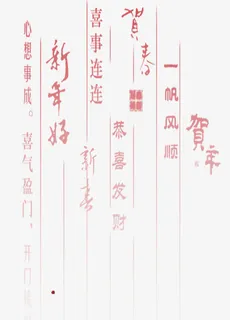 贺年
一帆风顺
贺春
恭喜发财
喜事连连
新喜
新年好
心想事成。喜气盈门，开门